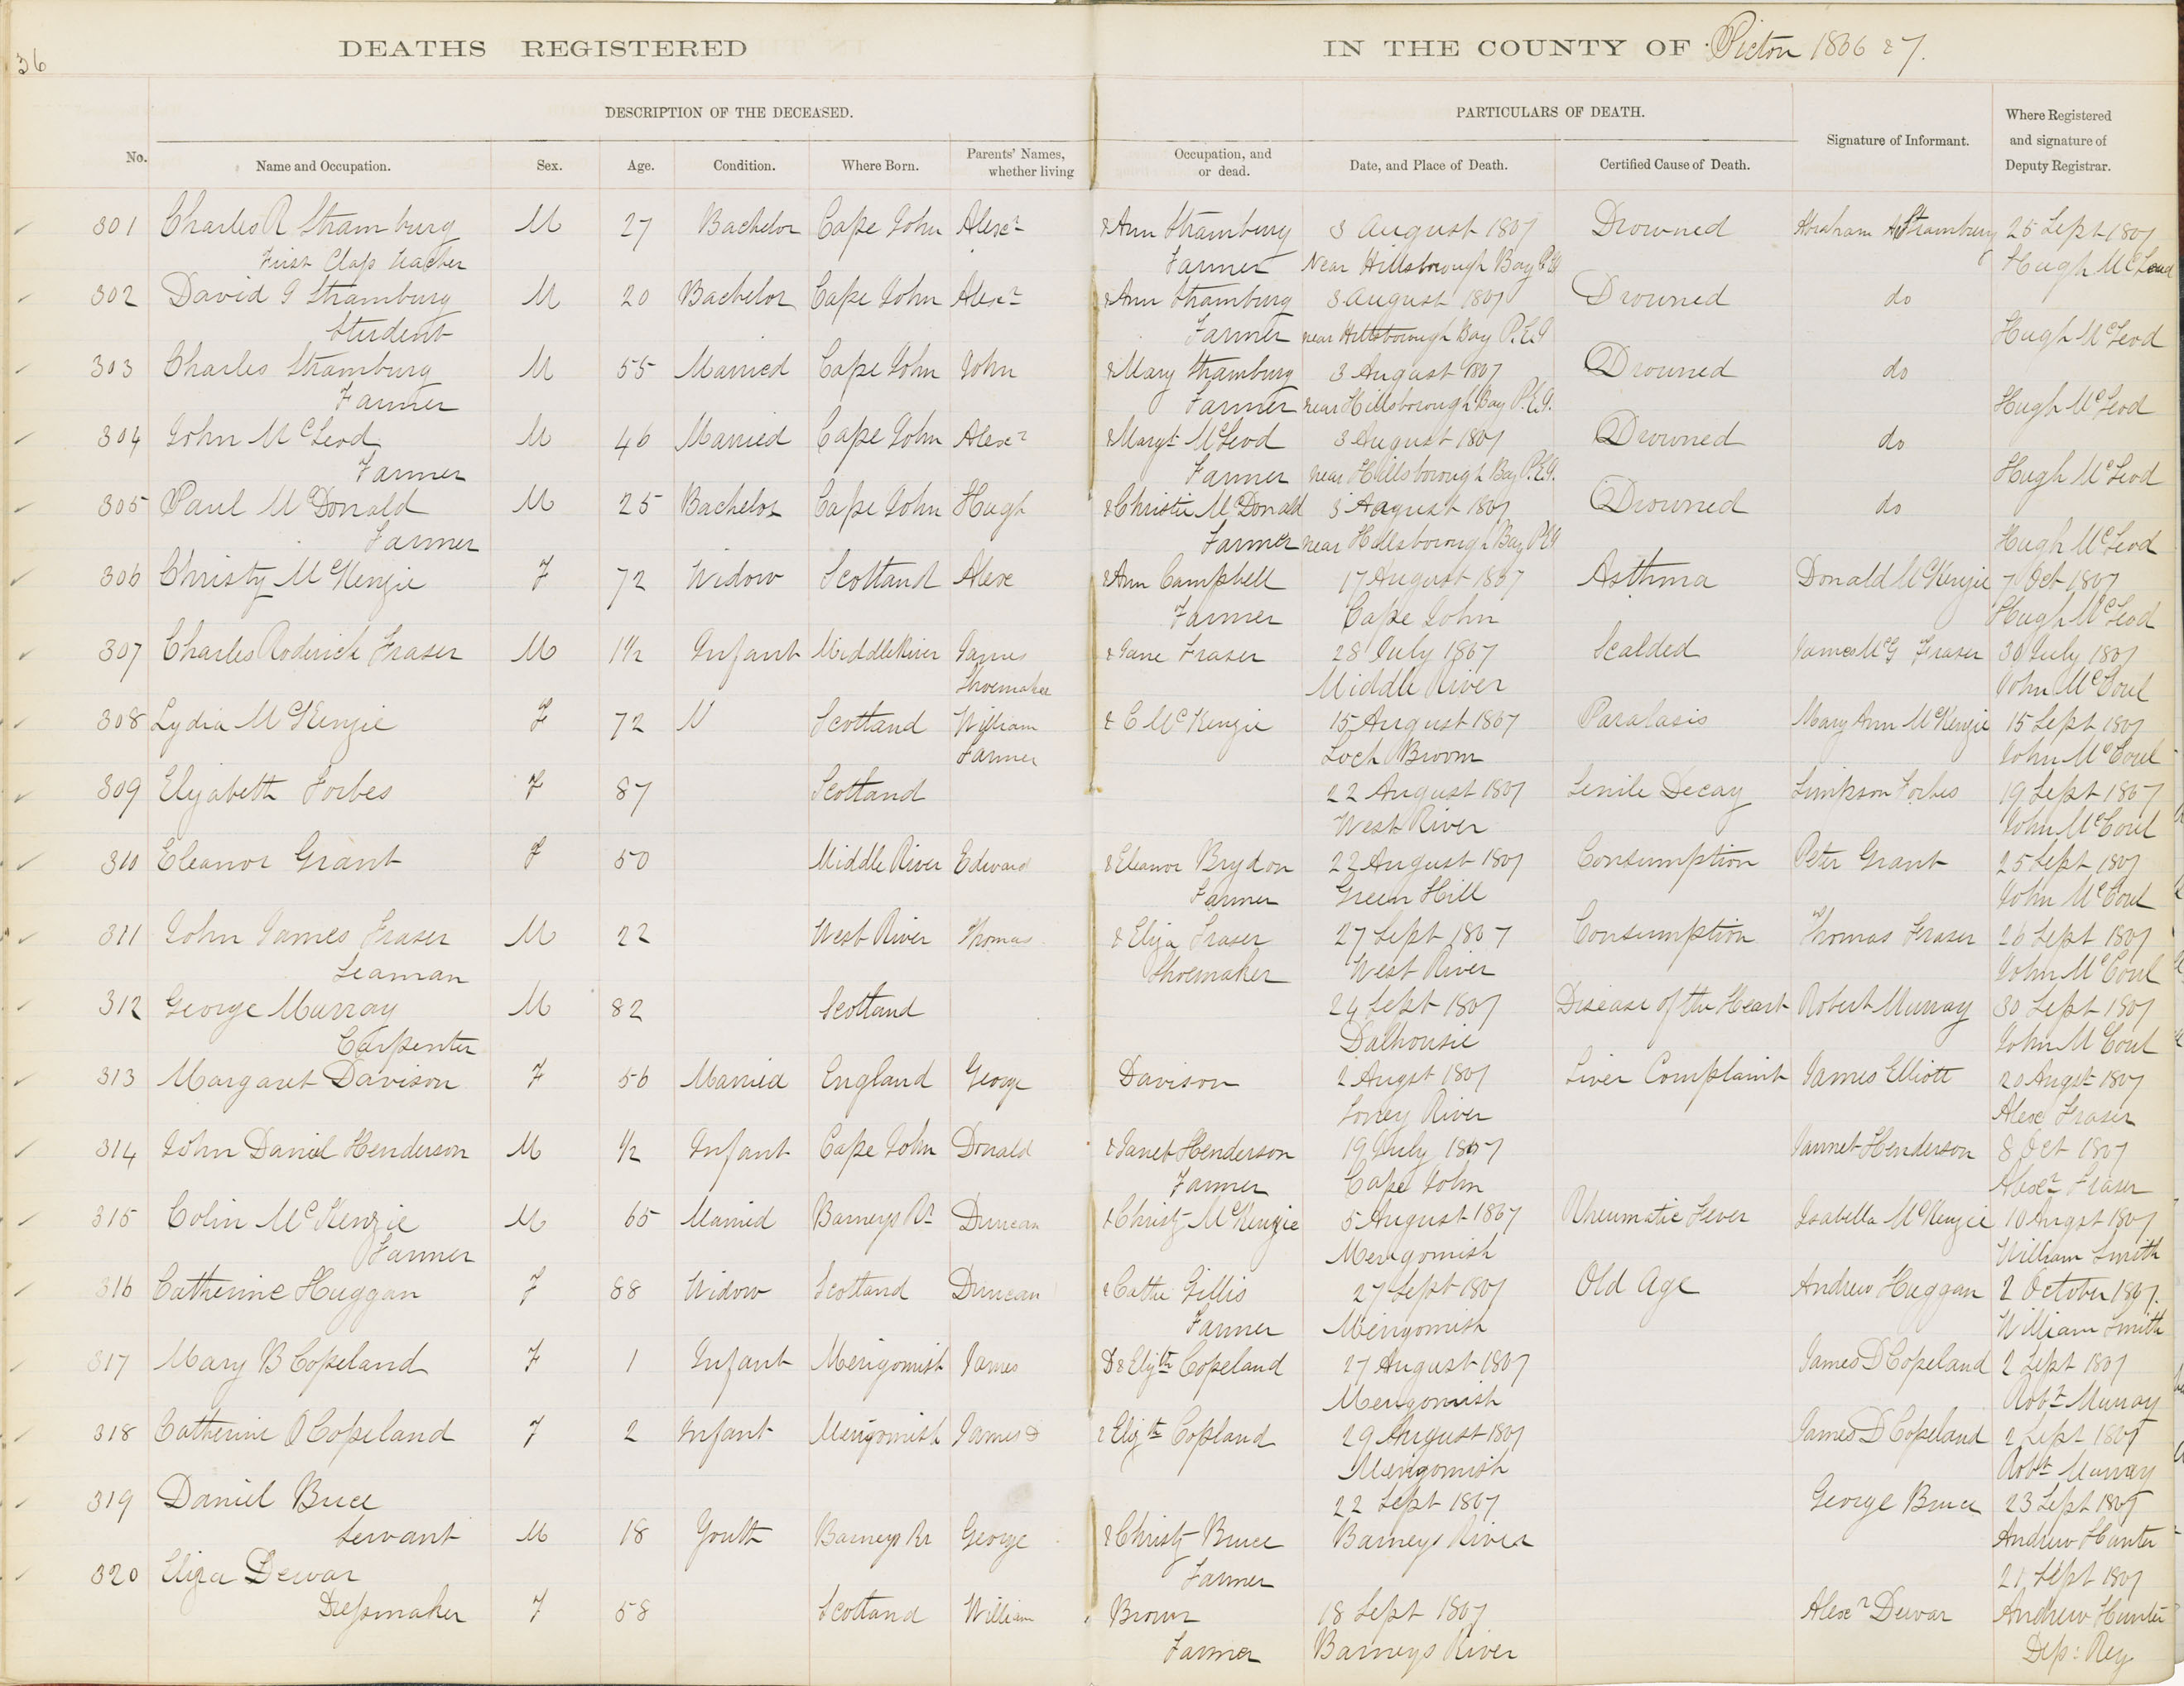 36
DEATHS REGISTERED IN THE COUNTY OF Pictou 1866 & 7.
DESCRIPTION OF THE DECEASED. PARTICULARS OF DEATH.
No. Name and Occupation. Sex. Age. Condition. Where Born. Parents' Names, whether living Occupation, and or dead. Date, and Place of Death. Certified Cause of Death. Signature of Informant. Where Registered and signature of Deputy Registrar.
301 Charles R Stramburg M 27 Bachelor Cape John Alexr & Ann Stramburg 3 August 1867 Drowned Abraham A Stramburg 25 Sept 1867
First Class Teacher Farmer Near Hillsborough Bay P.E.I Hugh McLeod
302 David G Stramburg M 20 Bachelor Cape John Alexr & Ann Stramburg 3 August 1867 Drowned do
Student Farmer near Hillsborough Bay P.E.I Hugh McLeod
303 Charles Stramburg M 55 Married Cape John John & Mary Stramburg 3 August 1867 Drowned do
Farmer Farmer near Hillsborough Bay P.E.I. Hugh McLeod
304 John McLeod M 46 Married Cape John Alexr & Margt McLeod 3 August 1867 Drowned do
Farmer Farmer near Hillsborough Bay P.E.I. Hugh McLeod
305 Paul McDonald M 25 Bachelor Cape John Hugh & Christie McDonald 3 August 1867 Drowned do
Farmer Farmer near Hillsborough Bay P.E.I Hugh McLeod
306 Christy McKenzie F 72 Widow Scotland Alex & Ann Campbell 17 August 1867 Asthma Donald McKenzie 7 Oct 1867
Farmer Cape John Hugh McLeod
307 Charles Roderick Fraser M 1½ Infant Middle River James & Jane Fraser 28 July 1867 Scalded James McG Fraser 30 July 1867
Shoemaker Middle River John McCoul
308 Lydia McKenzie F 72 N Scotland William & C McKenzie 15 August 1867 Paralasis Mary Ann McKenzie 15 Sept 1867
Farmer Loch Broom John McCoul
309 Elizabeth Forbes F 87 Scotland 22 August 1867 Senile Decay Simpson Forbes 19 Sept 1867
West River John McCoul
310 Eleanor Grant F 50 Middle River Edward & Eleanor Brydon 22 August 1867 Consumption Peter Grant 25 Sept 1867
Farmer Green Hill John McCoul
311 John James Fraser M 22 West River Thomas & Eliza Fraser 27 Sept 1867 Consumption Thomas Fraser 26 Sept 1867
Seaman Shoemaker West River John McCoul
312 George Murray M 82 Scotland 24 Sept 1867 Disease of the Heart Robert Murray 30 Sept 1867
Carpenter Dalhousie John McCoul
313 Margaret Davison F 56 Married England George Davison 2 Augst 1867 Liver Complaint James Elliott 20 Augst 1867
Toney River Alex Fraser
314 John Daniel Henderson M ½ Infant Cape John Donald & Janet Henderson 19 July 1867 Jannet Henderson 8 Oct 1867
Farmer Cape John Alexr Fraser
315 Colin McKenzie M 65 Married Barneys Rr Duncan & Christy McKenzie 5 August 1867 Rheumatic Fever Isabella McKenzie 10 Augst 1867
Farmer Merigomish William Smith
316 Catherine Huggan F 88 Widow Scotland Duncan & Cathe Gillis 27 Sept 1867 Old Age Andrew Huggan 2 October 1867.
Farmer Merigomish William Smith
317 Mary B Copeland F 1 Infant Merigomish James D & Elizth Copeland 27 August 1867 James D Copeland 2 Sept 1867
Merigomish Robt Murray
318 Catherine O Copeland F 2 Infant Merigomish James D & Elizth Copland 29 August 1867 James D Copeland 2 Sept 1867
Merigomish Robt Murray
319 Daniel Bruce 22 Sept 1867 George Bruce 23 Sept 1867
Servant M 18 Youth Barneys Rr George & Christy Bruce Barneys River Andrew Hunter
320 Eliza Dewar Farmer 21 Sept 1867
Dressmaker F 58 Scotland William Brown 18 Sept 1867 Alexr Dewar Andrew Hunter
Farmer Barneys River Dep: Reg